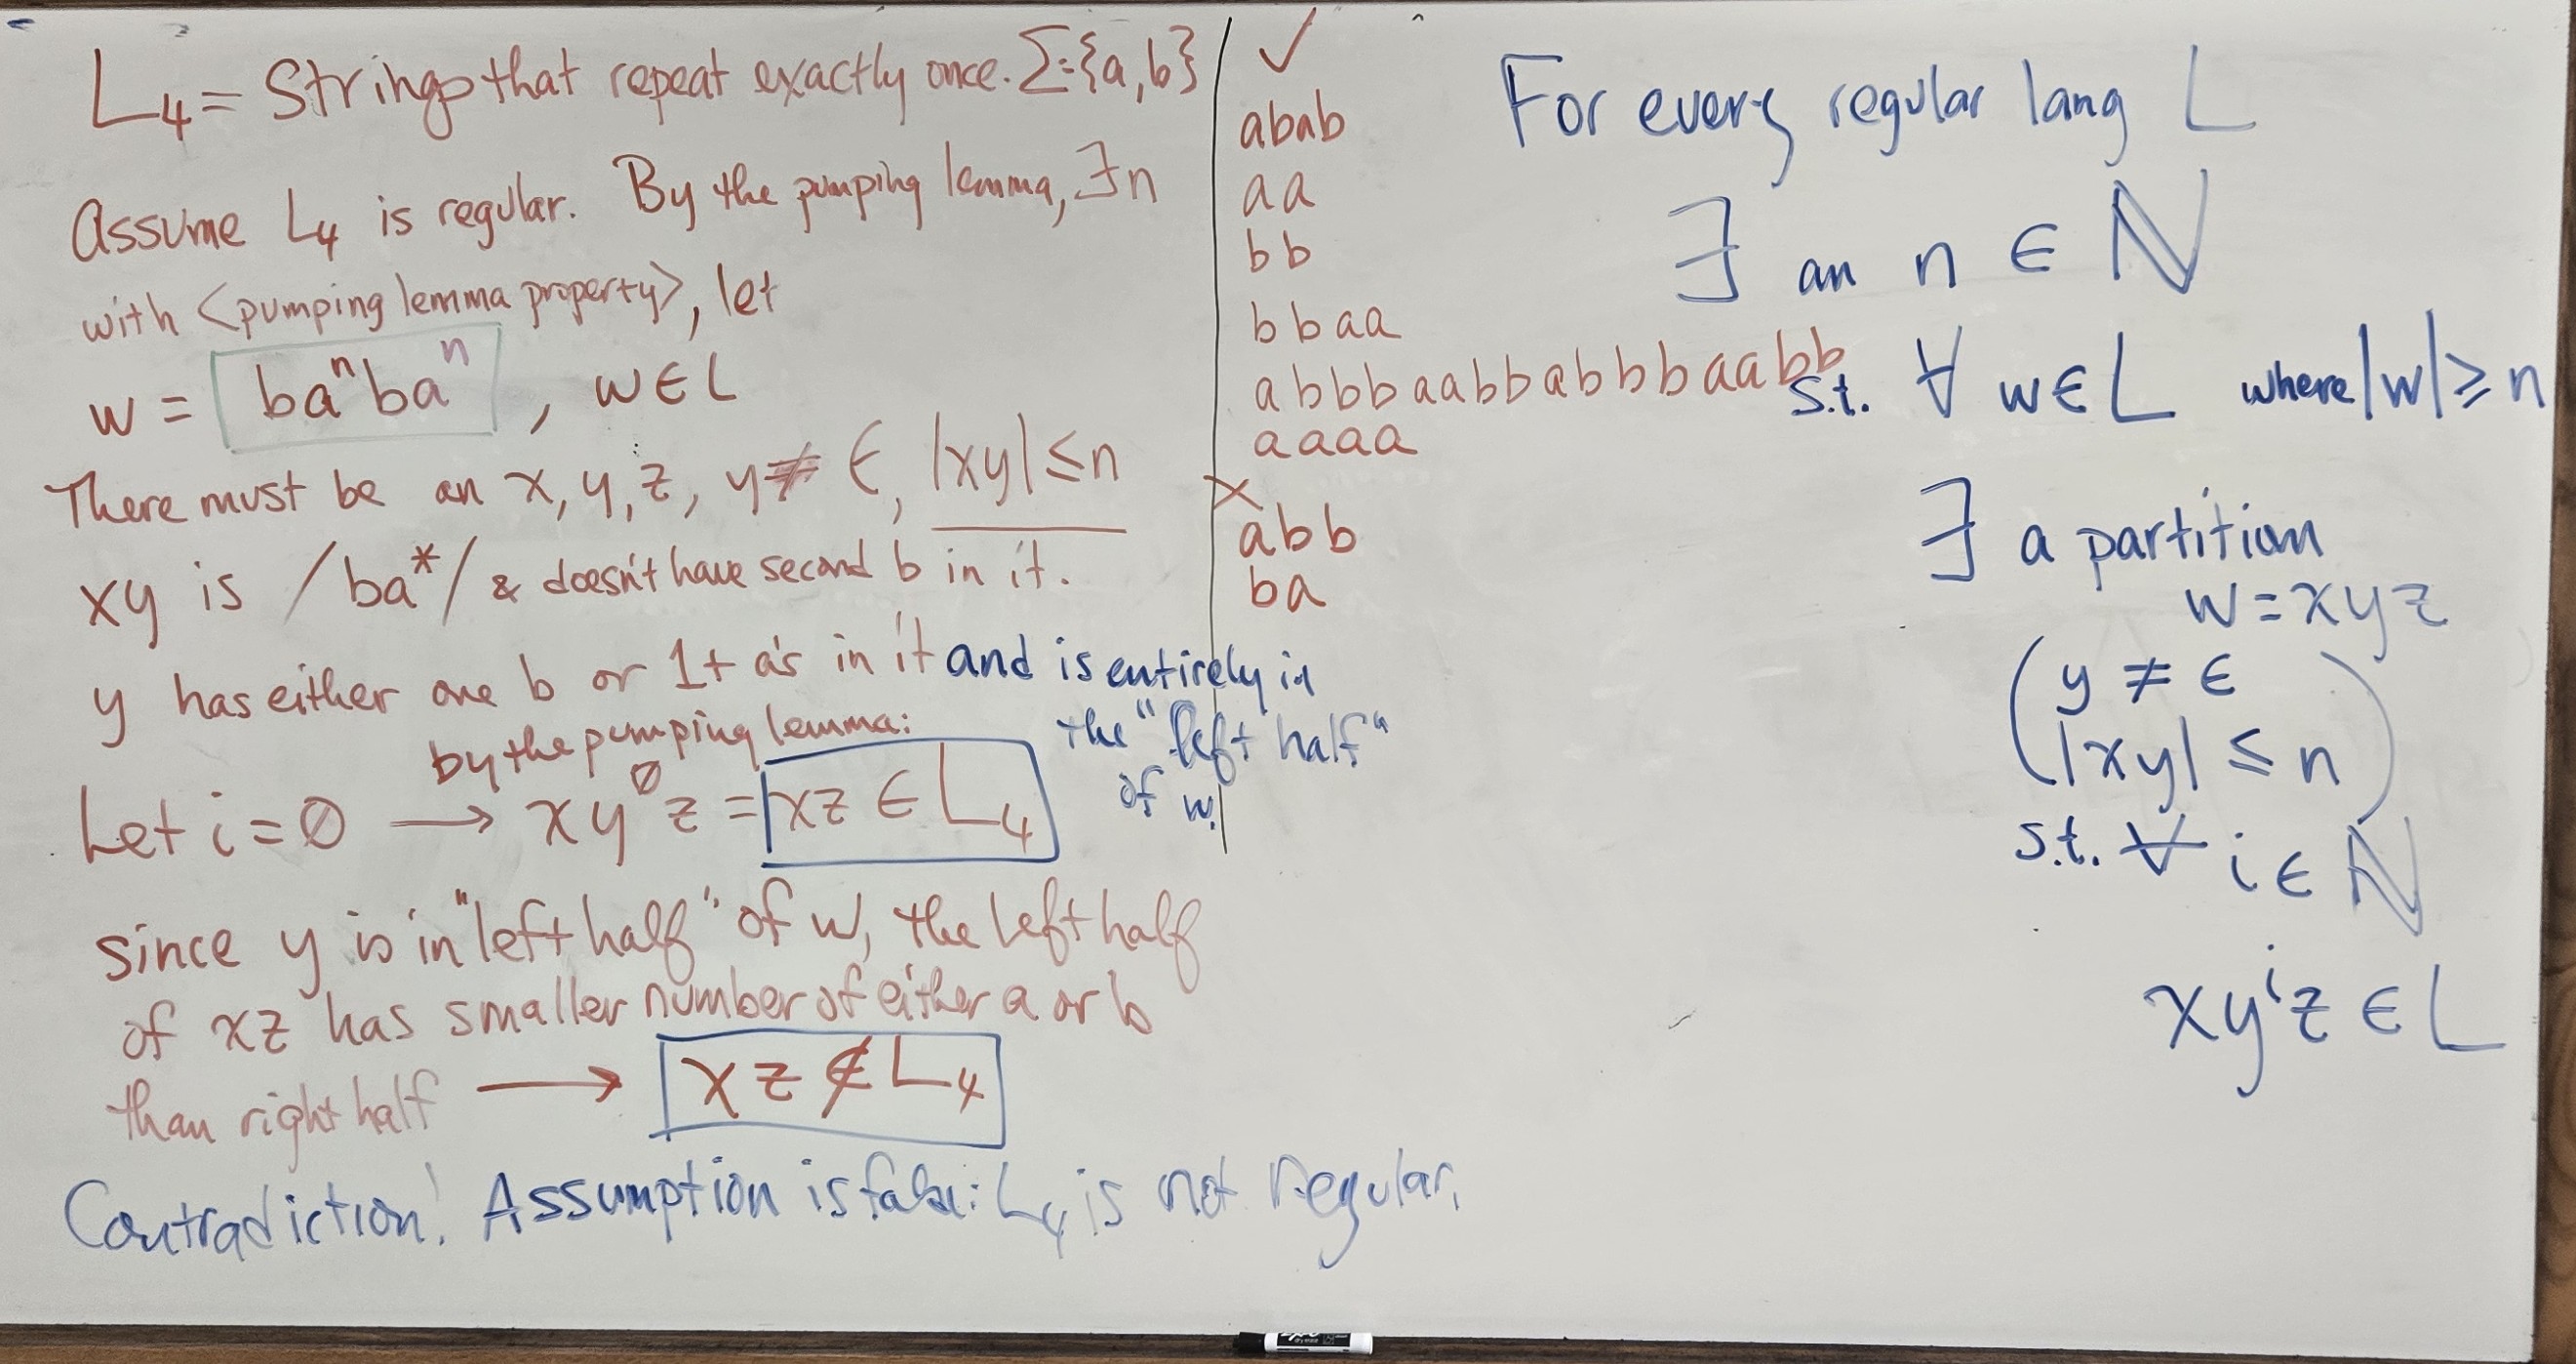 L₄ = Strings that repeat exactly once. Σ={a,b}
Assume L₄ is regular. By the pumping lemma, ∃n
with <pumping lemma property>, let
w = baⁿbaⁿ , w∈L
There must be an x, y, z, y≠ ϵ, |xy|≤n
xy is /ba*/ & doesn't have second b in it.
y has either one b or 1+ a's in it and is entirely in
the "left half"
of w.
by the pumping lemma:
Let i=0 → xy⁰z = xz ∈ L₄
since y is in "left half" of w, the left half
of xz has smaller number of either a or b
than right half → xz ∉ L₄
Contradiction! Assumption is false: L₄ is not regular.
✓
abab
aa
bb
bbaa
abbbaabbabbbaabb
aaaa
×
abb
ba
For every regular lang L
∃ an n ∈ ℕ
s.t. ∀ w∈L where |w|≥n
∃ a partition
w=xyz
(y ≠ ϵ
|xy| ≤ n)
s.t. ∀ i∈ℕ
xyⁱz ∈ L